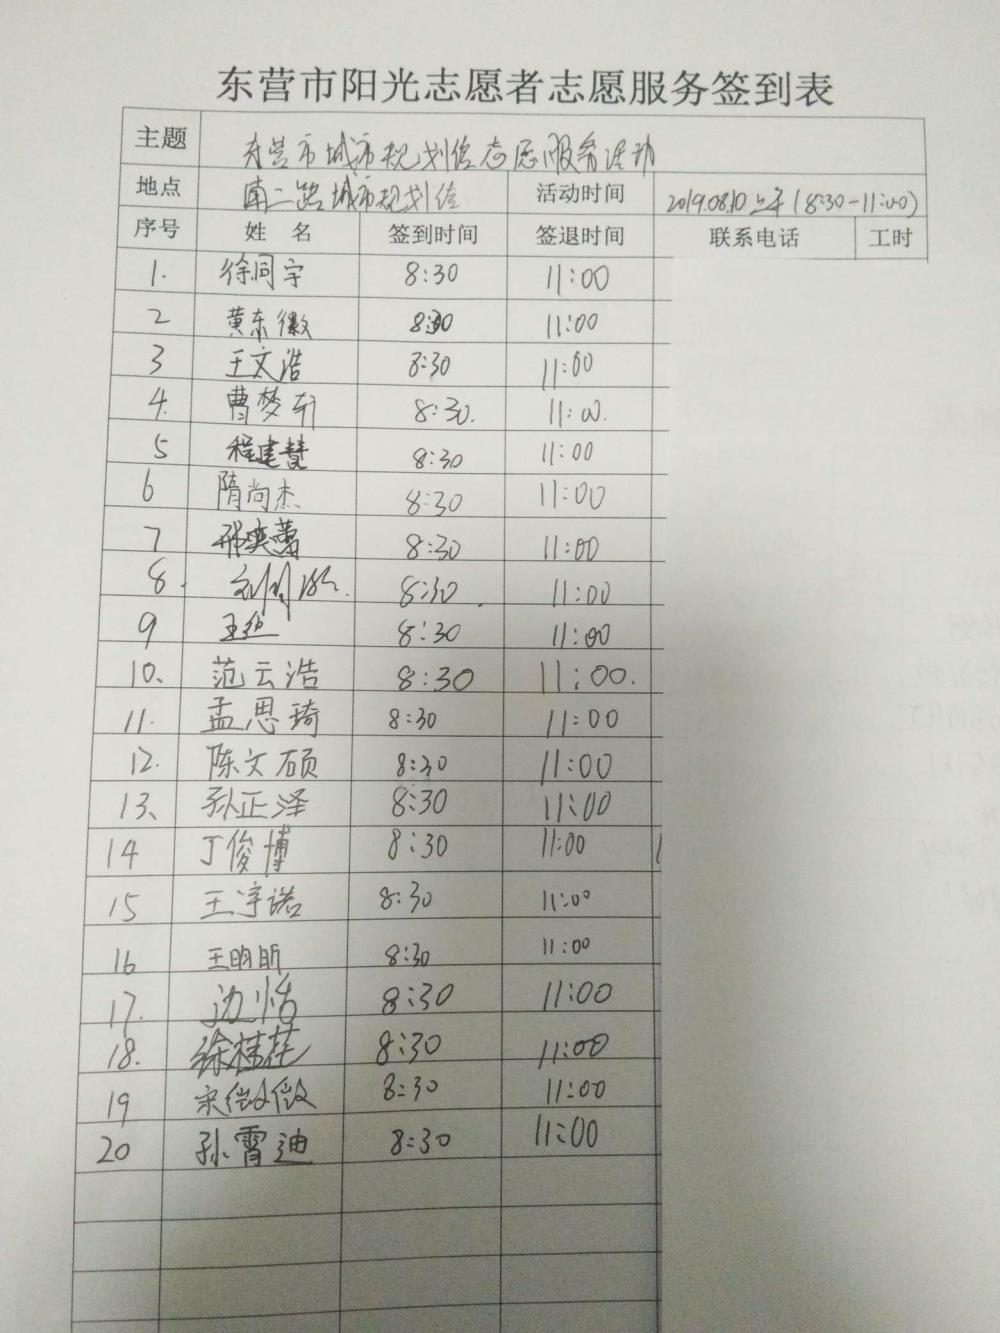 东营市阳光志愿者志愿服务签到表
主题 东营市城市规划馆志愿服务活动
地点 南二路城市规划馆 活动时间 2019.08.10上午(8:30-11:00)
序号 姓名 签到时间 签退时间 联系电话 工时
1. 徐同宇 8:30 11:00
2 黄东徽 8:30 11:00
3 王文浩 8:30 11:00
4. 曹梦轩 8:30. 11:00.
5 程建慧 8:30 11:00
6 隋尚杰 8:30 11:00
7 邢奕蕾 8:30 11:00
8. 8:30 11:00
9 8:30 11:00
10、 范云浩 8:30 11:00.
11. 孟思琦 8:30 11:00
12. 陈文硕 8:30 11:00
13、 孙正泽 8:30 11:00
14 丁俊博 8:30 11:00
15 王宇诺 8:30 11:00
16 王明昕 8:30 11:00
17. 边恬 8:30 11:00
18. 徐桂花 8:30 11:00
19 宋微微 8:30 11:00
20 孙霄迪 8:30 11:00